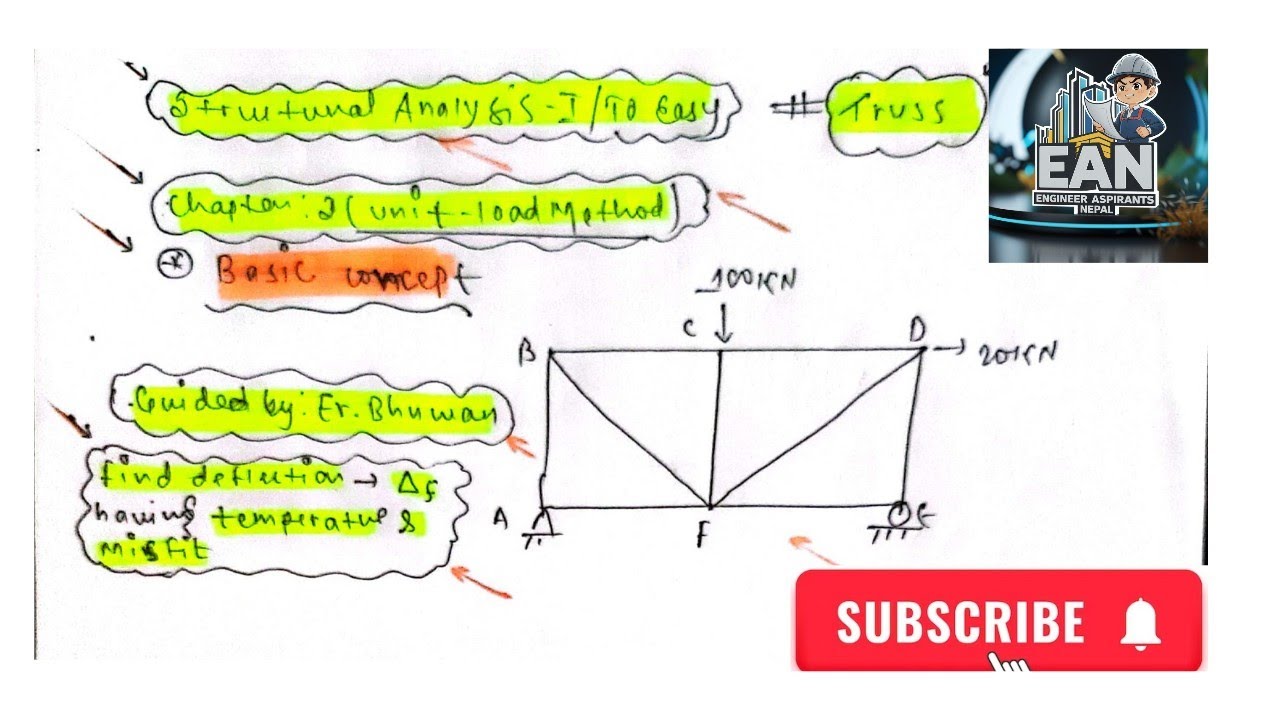 Structural Analysis-I/TO Easy # Truss
Chapter: 2 (unit-load Method)
Basic concept
Guided by: Er. Bhuwan
find deflection → Δ
having temperature &
misfit
100KN
B C D → 20KN
A F E
EAN
ENGINEER ASPIRANTS
NEPAL
SUBSCRIBE